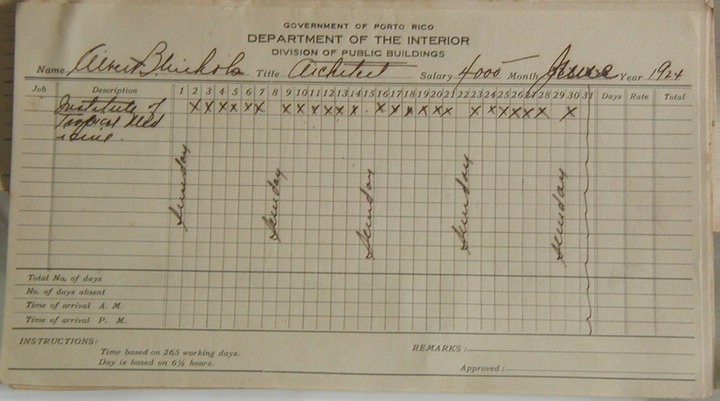 GOVERNMENT OF PORTO RICO
DEPARTMENT OF THE INTERIOR
DIVISION OF PUBLIC BUILDINGS
Name Albert B. Nichols Title Architect Salary 4000 Month June Year 1924
Job Description 1 2 3 4 5 6 7 8 9 10 11 12 13 14 15 16 17 18 19 20 21 22 23 24 25 26 27 28 29 30 31 Days Rate Total
Institute of X X X X X X X X X X X X X X X X X X X X X X X X X
Tropical Med
icine.
Sunday Sunday Sunday Sunday Sunday
Total No. of days
No. of days absent
Time of arrival A. M.
Time of arrival P. M.
INSTRUCTIONS:
Time based on 265 working days.
Day is based on 6½ hours.
REMARKS:
Approved: